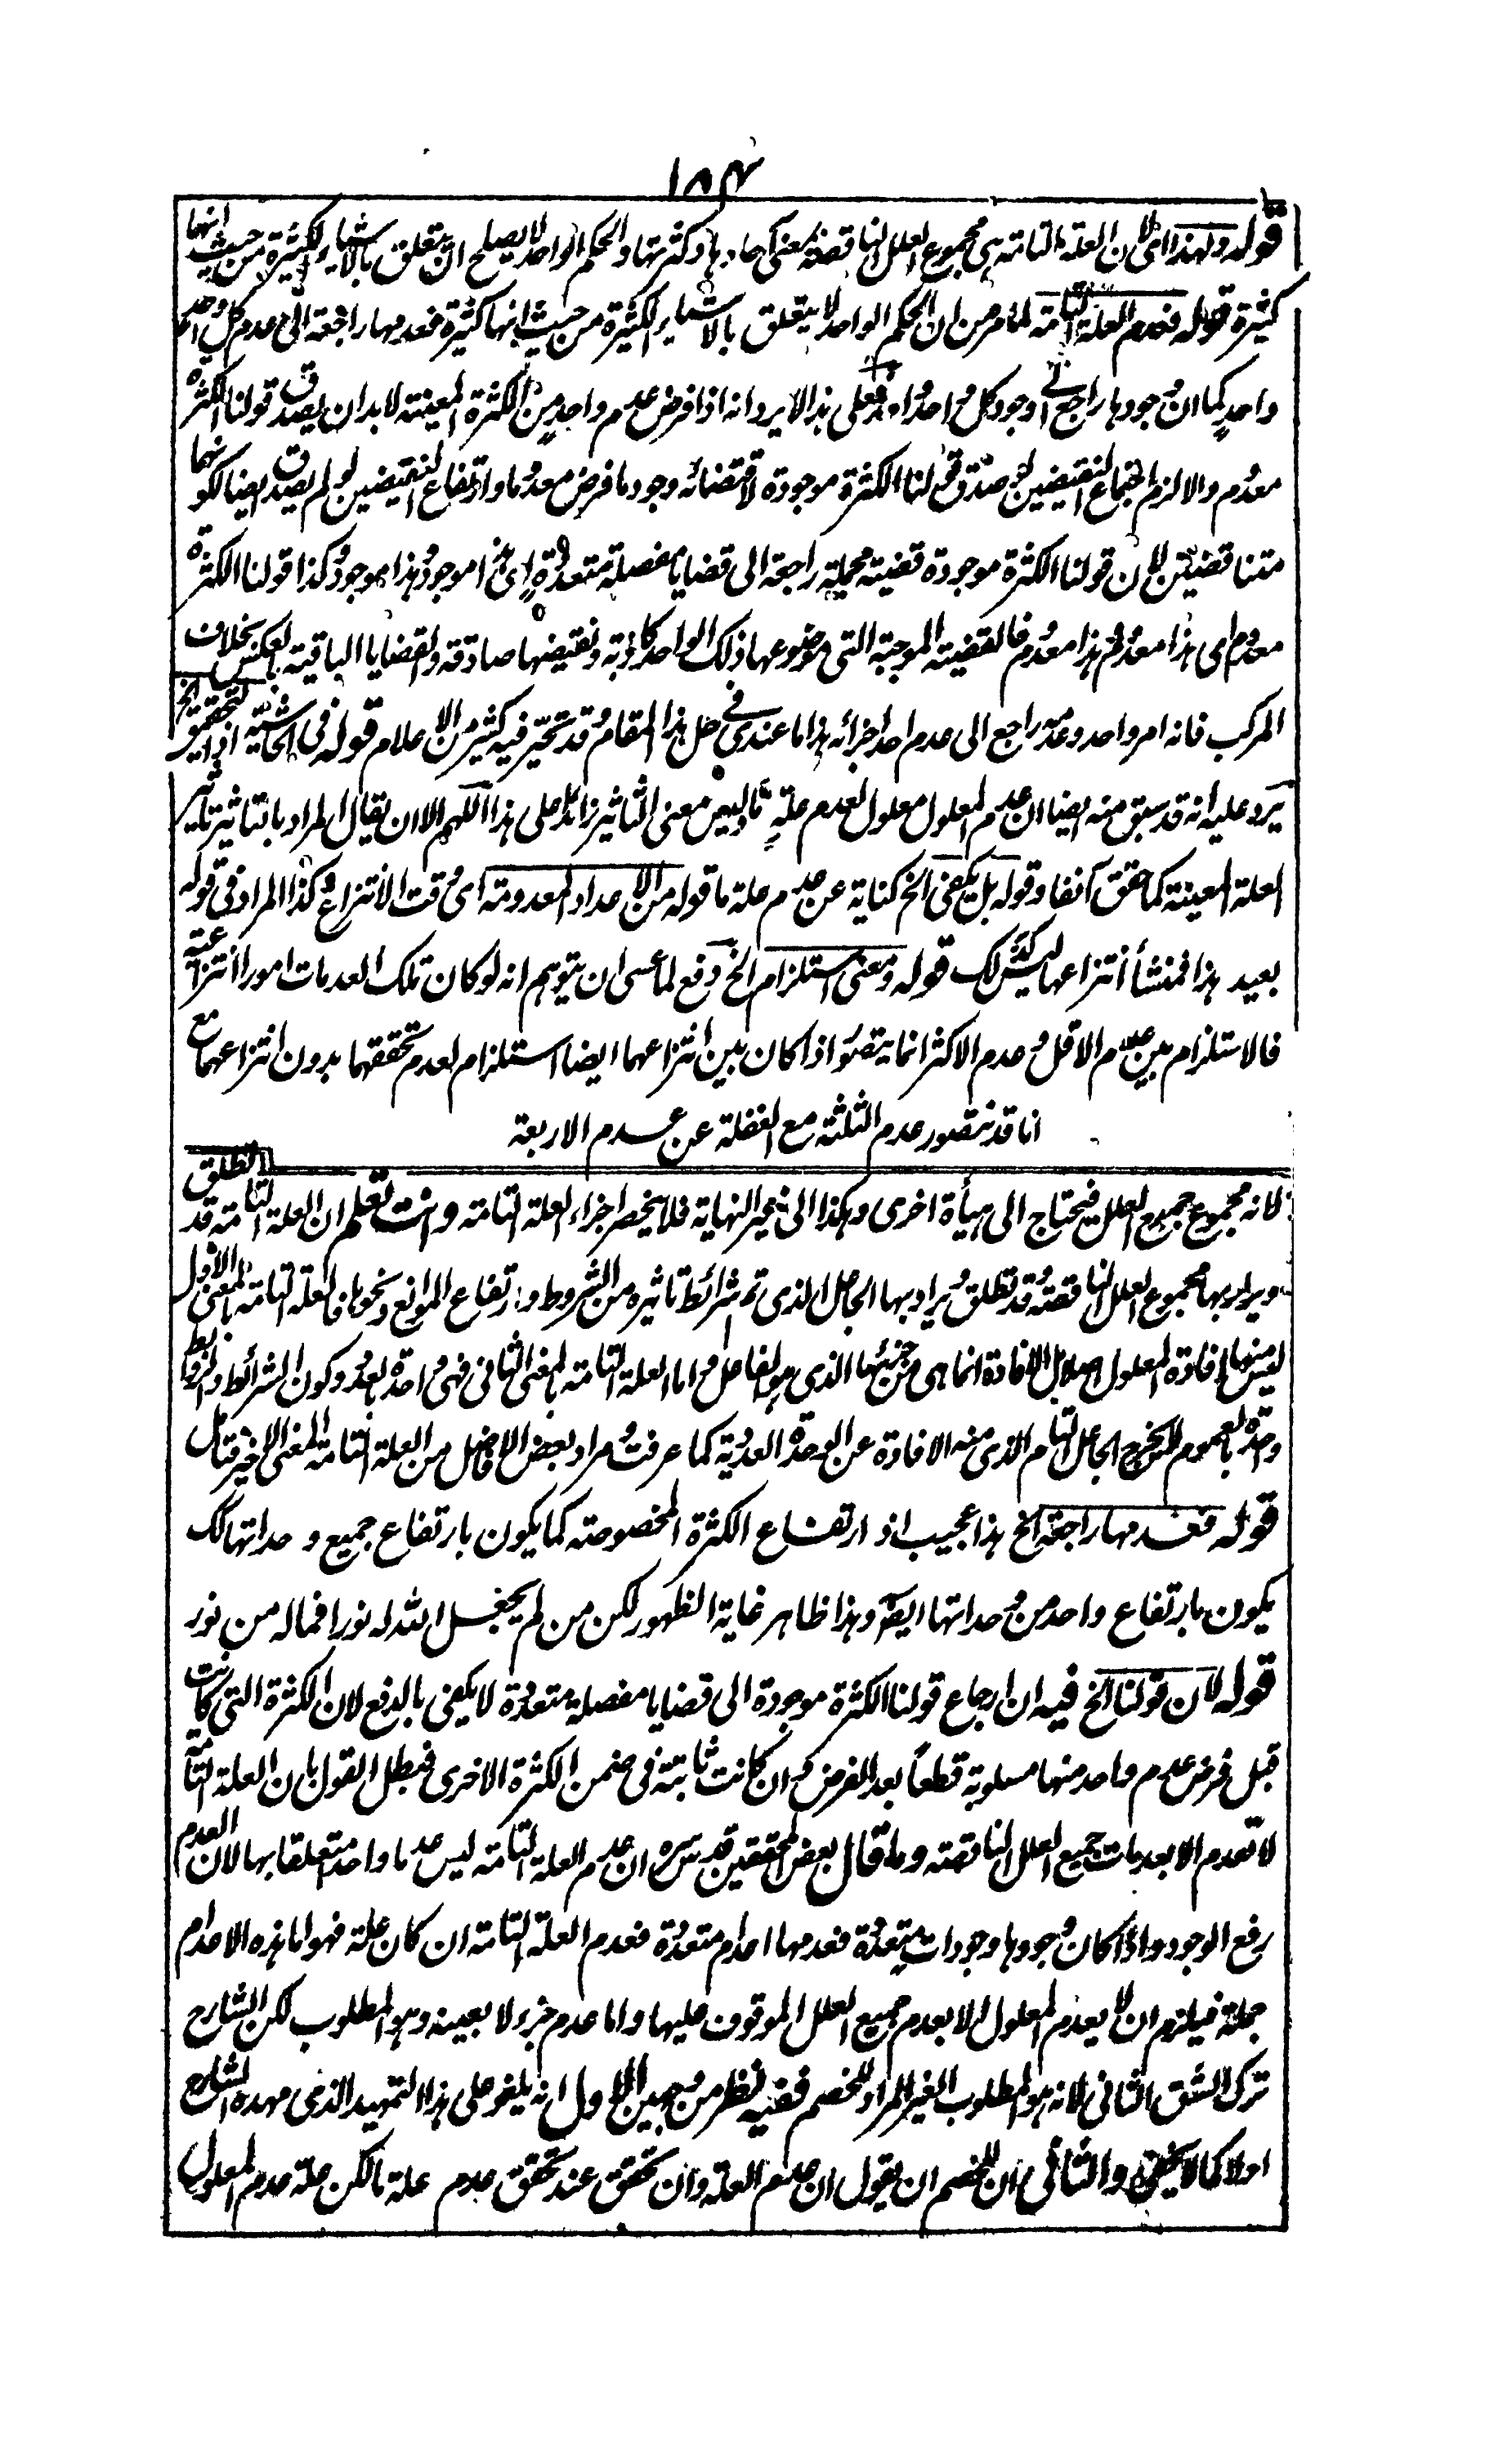 ١٨٤
قوله ولهذا اى لان العلة التامة هى مجموع العلل الناقصة بمعنى آحادها وكثرتها والحكم الواحد لا يصلح ان يتعلق بالاشياء الكثيرة من حيث انها
كثيرة قوله فعدم العلة التامة لما مر من ان الحكم الواحد لا يتعلق بالاشياء الكثيرة من حيث انها كثيرة فعدمها راجعة الى عدم كل واحد
واحد كما ان وجودها راجع الى وجود كل واحد واحد فعلى هذا لا يرد انه اذا فرض عدم واحد من الكثرة المعينة لا بد ان يصدق قولنا الكثرة
معدوم والا لزم اجتماع النقيضين لو صدق قولنا الكثرة موجودة لاقتضائه وجود ما فرض معدوما وارتفاع النقيضين لو لم يصدق ايضا لكونهما
متناقضتين لان قولنا الكثرة موجودة قضية مجملة راجعة الى قضايا مفصلة متعددة اى هذا موجود وهذا موجود وكذا قولنا الكثرة
معدوم اى هذا معدوم وهذا معدوم فالقضية الموجبة التى موضوعها ذلك الواحد كاذبة ونقيضها صادقة والقضايا الباقية بالعكس بخلاف
المركب فانه امر واحد وعدمه راجع الى عدم احد اجزائه هذا ما عندى فى حل هذا المقام وقد تحير فيه كثير من الاعلام قوله فى الحاشية اذ التحقيق الخ
يرد عليه انه قد سبق منه ايضا ان عدم المعلول معلول لعدم علة ما وليس معنى التاثير زائد على هذا اللهم الا ان يقال المراد بالتاثير تاثير
العلة المعينة كما حقق آنفا وقوله بل يكفى الخ كناية عن عدم علة ما قوله من الاعداد المعدومة اى وقت الانتزاع وكذا المراد فى قوله
بعيد هذا فمنشأ انتزاعها ليس كذلك قوله ومعنى استلزام الخ دفع لما عسى ان يتوهم انه لو كان تلك العدمات امورا انتزاعية
فالاستلزام بين عدم الاقل وعدم الاكثر انما يتصور اذا كان بين انتزاعهما ايضا استلزام لعدم تحققهما بدون انتزاعهما مع
انا قد نتصور عدم الثلثة مع الغفلة عن عدم الاربعة
لانه مجموع جميع العلل فيحتاج الى هيأة اخرى وهكذا الى غير النهاية فلا ينحصر اجزاء العلة التامة وانت تعلم ان العلة التامة قد تطلق
ويراد بها مجموع العلل الناقصة وقد تطلق ويراد بها الجاعل الذى تم شرائط تاثيره من الشروط وارتفاع الموانع ونحوها فالعلة التامة بالمعنى الاول
ليس منها افادة المعلول اصلا بل الافادة انما هى من جزئها الذى هو الفاعل واما العلة التامة بالمعنى الثانى فهى واحدة بالعدد وكون الشرائط والروابط
واحدة بالعموم لا يخرج الجاعل التام الذى منه الافادة عن الوحدة العددية كما عرفت ومراد بعض الافاضل من العلة التامة المعنى الاخير فتامل
قوله فعدمها راجعة الخ هذا عجيب اذ ارتفاع الكثرة المخصوصة كما يكون بارتفاع جميع وحداتها كك
يكون بارتفاع واحد من وحداتها ايضا وهذا ظاهر غاية الظهور لكن من لم يجعل الله له نورا فما له من نور
قوله لان قولنا الخ فيه ان ارجاع قولنا الكثرة موجودة الى قضايا مفصلة متعددة لا يكفى بالدفع لان الكثرة التى كانت
قبل فرض عدم واحد منها مسلوبة قطعا بعد الفرض وان كانت ثابتة فى ضمن الكثرة الاخرى فبطل القول بان العلة التامة
لا تعدم الا بعدمات جميع العلل الناقصة وما قال بعض المحققين قدس سره ان عدم العلة التامة ليس عدما واحدا متعلقا بها لان العدم
رفع الوجود واذا كان وجودها وجودات متعددة فعدمها اعدام متعددة فعدم العلة التامة ان كان علة فهو اما هذه الاعدام
جملة فيلزم ان لا يعدم المعلول الا بعدم جميع العلل الموقوف عليها واما عدم جزء لا بعينه وهو المطلوب لكن الشارح
ترك الشق الثانى لانه هو المطلوب الغير المراد للخصم ففيه نظر من وجهين الاول انه يلغو على هذا التمهيد الذى مهده الشارح
اولا كما لا يخفى والثانى ان للخصم ان يقول ان عدم العلة وان تحقق عند تحقق عدم علة ما لكن علة عدم المعلول